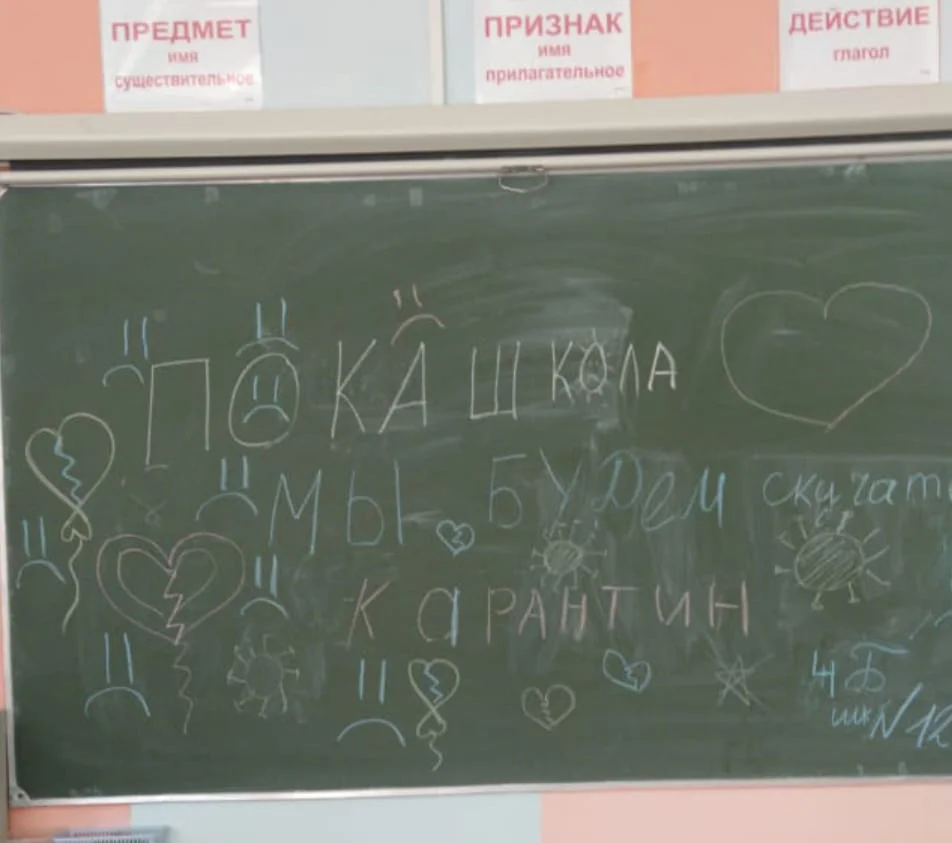 ПРЕДМЕТ
имя
существительное
ПРИЗНАК
имя
прилагательное
ДЕЙСТВИЕ
глагол
ПОКА ШКОЛА
МЫ БУДЕМ скучать
КАРАНТИН
4 Б
шк N 12